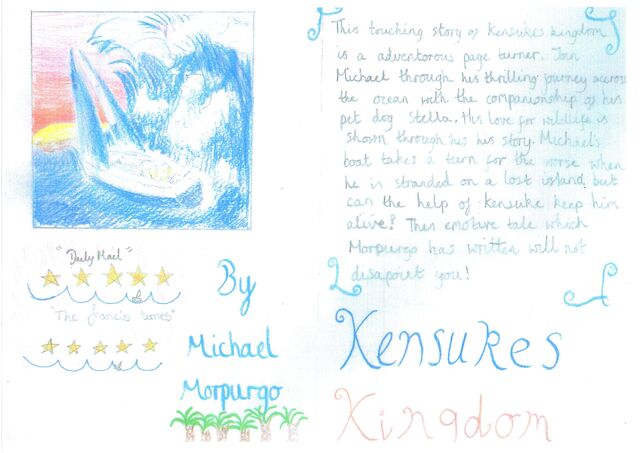 "Daily Mail"
"The francis times"
By
Michael
Morpurgo
This touching story of Kensukes kingdom
is a adventorous page turner. Join
Michael through his thrilling journey across
the ocean with the companionship of his
pet dog Stella. His love for wildlife is
shown through his his story. Michael's
boat takes a turn for the worse when
he is stranded on a lost island, but
can the help of Kensuke keep him
alive? This emotive tale which
Morpurgo has written will not
disapoint you!
Kensukes
Kingdom